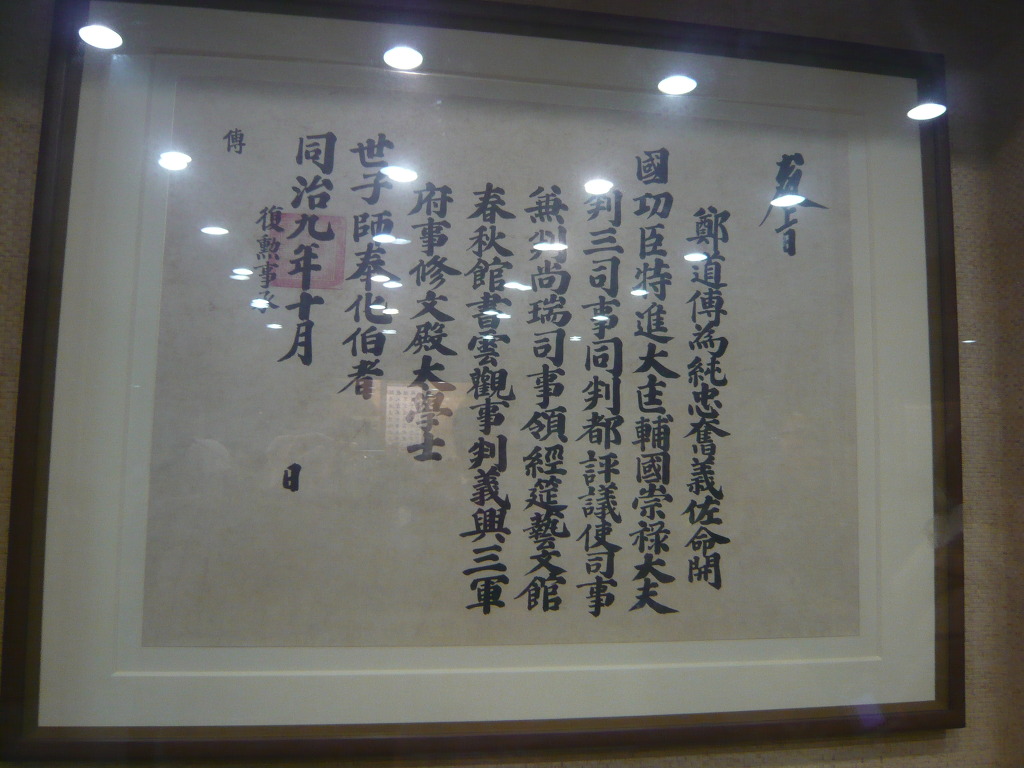 教旨
鄭道傳為純忠奮義佐命開
國功臣特進大匡輔國崇祿大夫
判三司事同判都評議使司事
兼判尚瑞司事領經筵藝文館
春秋館書雲觀事判義興三軍
府事修文殿太學士
世子師奉化伯者
同治九年十月 日
復勳事承
傳